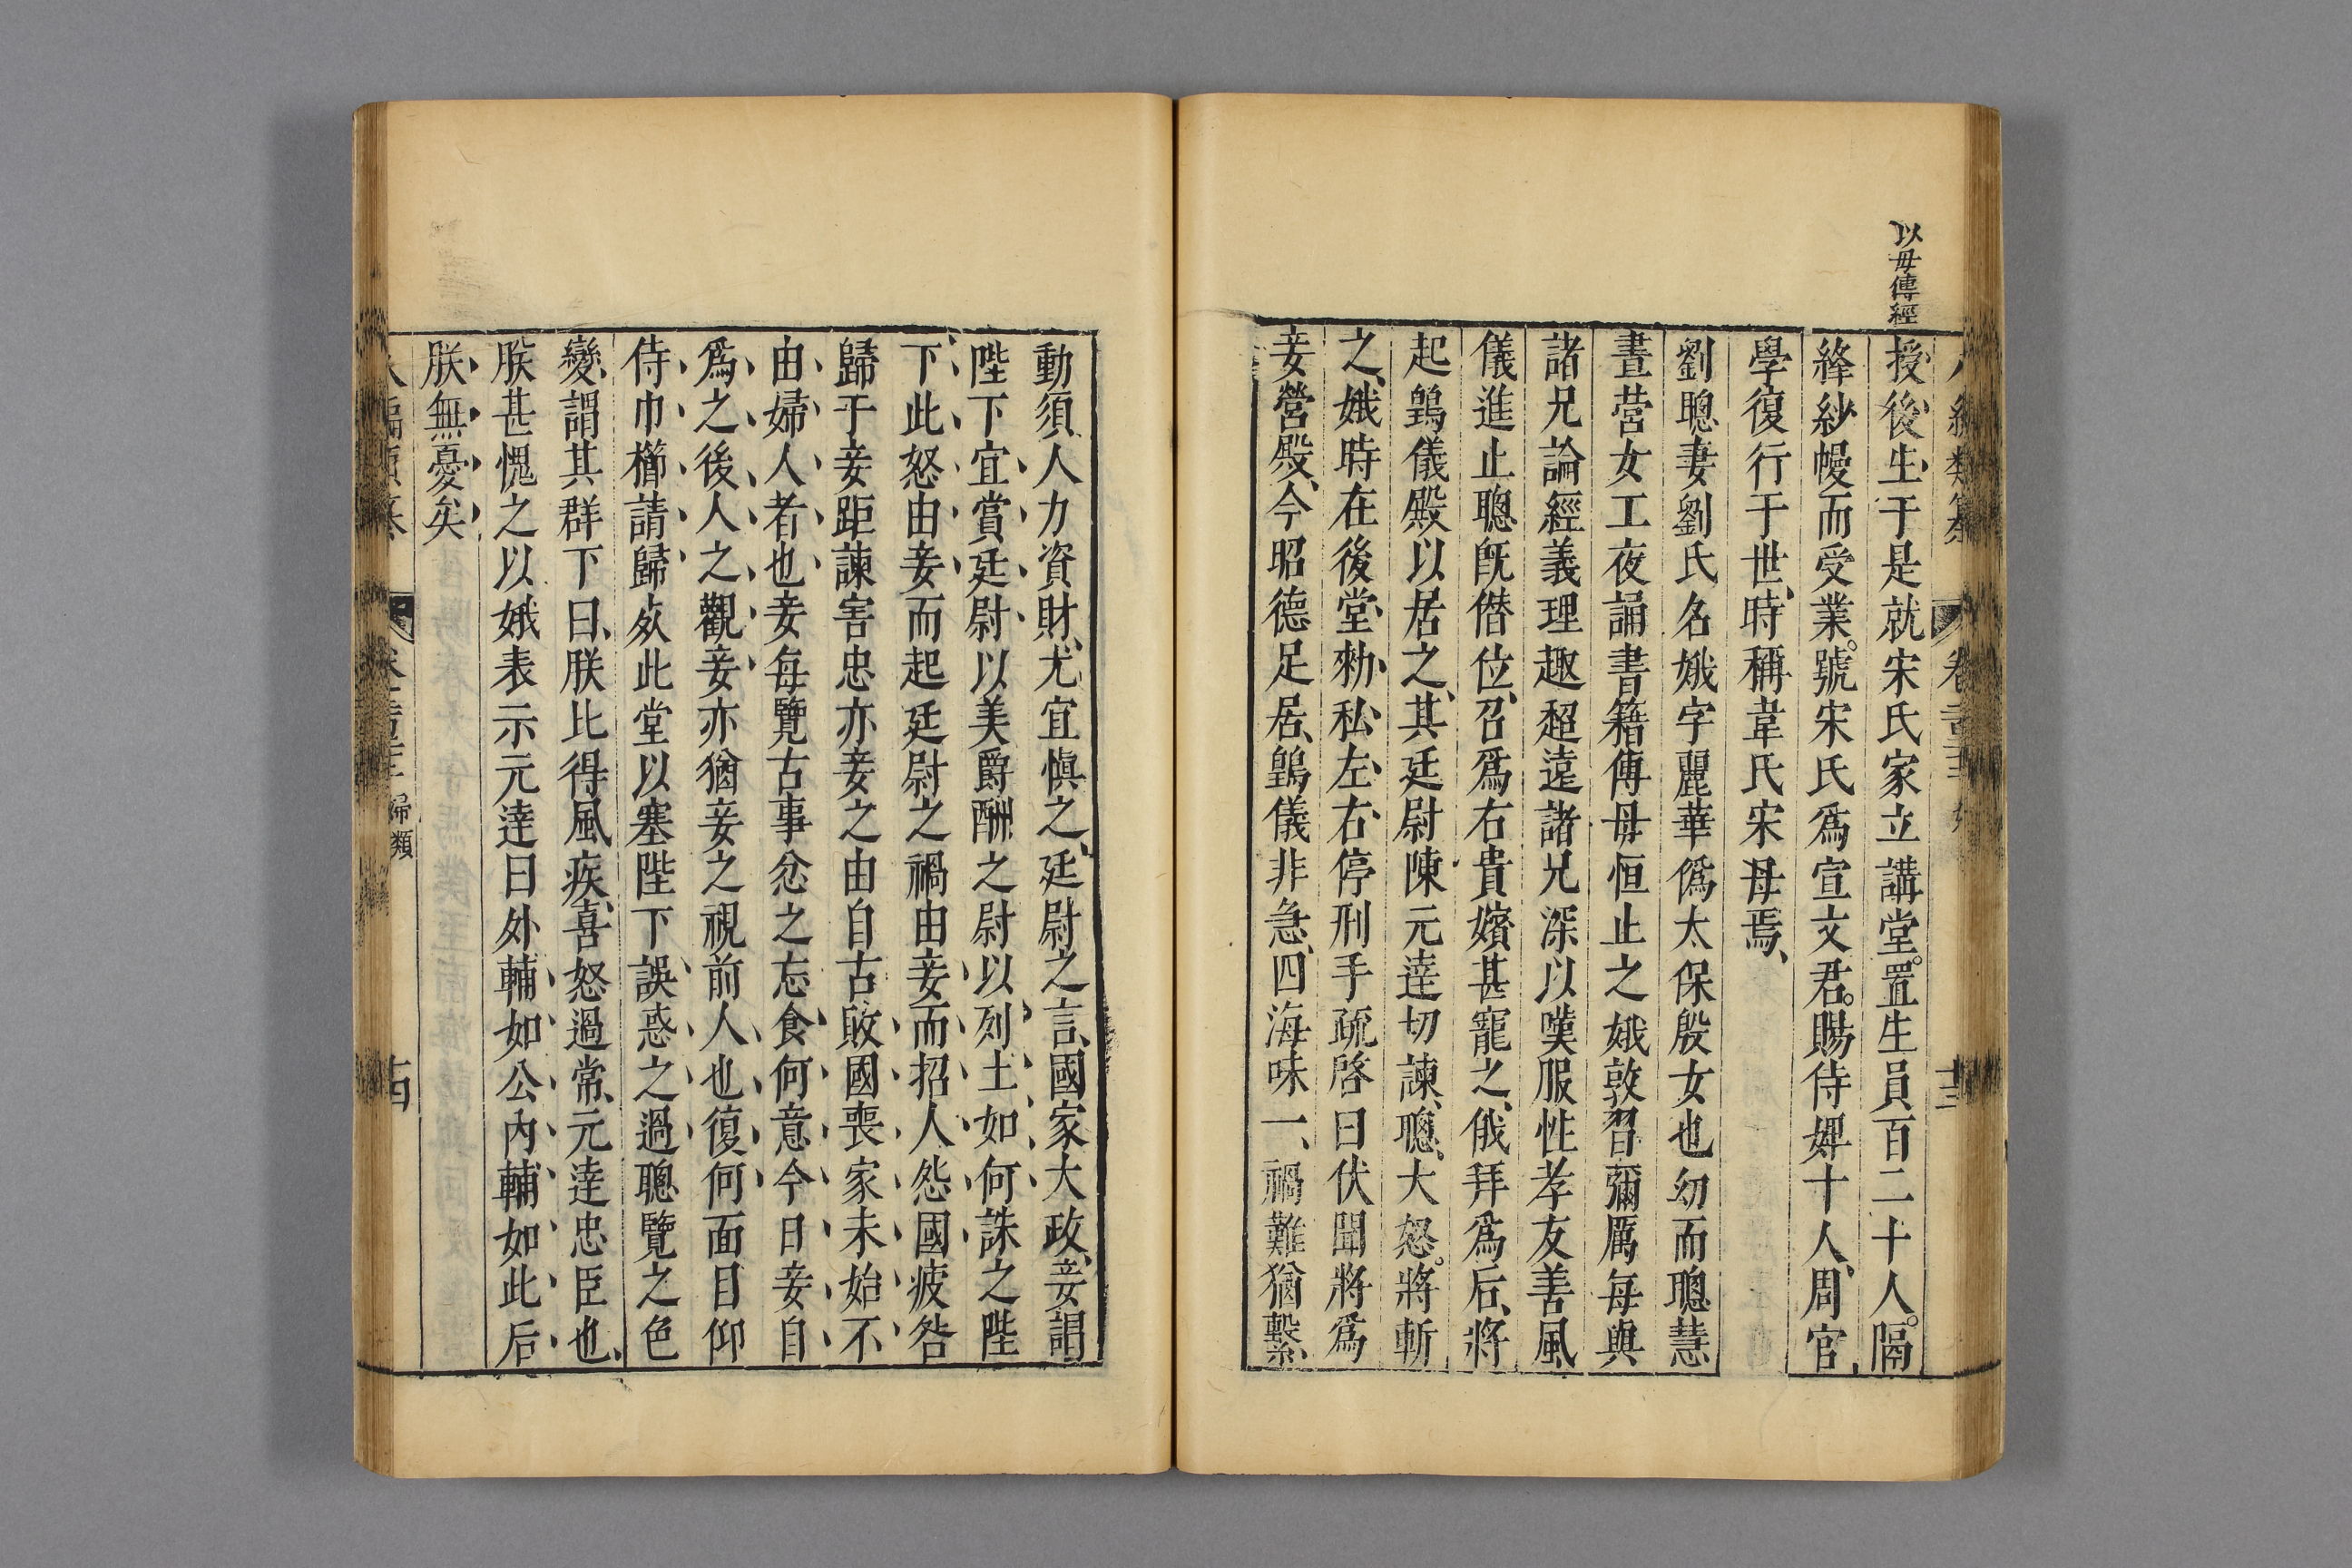 以母傳經
授後生于是就宋氏家立講堂置生員百二十人隔
絳紗幔而受業號宋氏爲宣文君賜侍婢十人周官
學復行于世時稱韋氏宋母焉
劉聰妻劉氏名娥字麗華僞太保殷女也幼而聰慧
晝營女工夜誦書籍傅母恒止之娥敦習彌厲每與
諸兄論經義理趣超遠諸兄深以嘆服性孝友善風
儀進止聰旣僣位召爲右貴嬪甚寵之俄拜爲后將
起䳨儀殿以居之其廷尉陳元逹切諫聰大怒將斬
之娥時在後堂勑私左右停刑手疏啓曰伏聞將爲
妾營殿今昭德足居䳨儀非急四海味一禍難猶繫
動須人力資財尤宜愼之廷尉之言國家大政妾謂
陛下宜賞廷尉以美爵酬之尉以列土如何誅之陛
下此怒由妾而起廷尉之禍由妾而招人怨國疲咎
歸于妾距諫害忠亦妾之由自古敗國喪家未始不
由婦人者也妾每覽古事忿之忘食何意今日妾自
爲之後人之觀妾亦猶妾之視前人也復何面目仰
侍巾櫛請歸死此堂以塞陛下誤惑之過聰覽之色
變謂其群下曰朕比得風疾喜怒過常元逹忠臣也
朕甚愧之以娥表示元逹曰外輔如公內輔如此后
朕無憂矣
婦類
十四